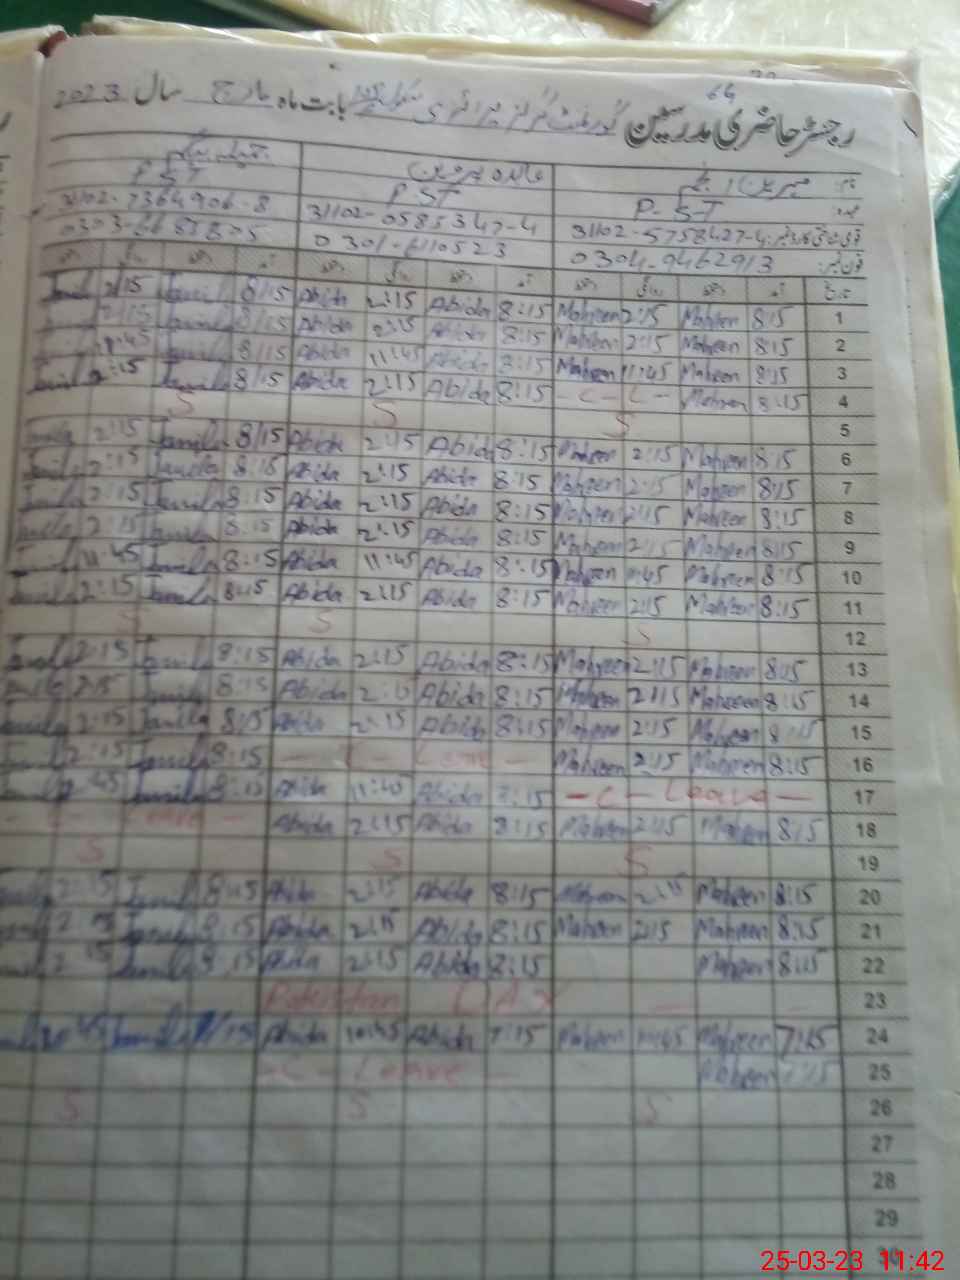 رجسٹر حاضری مدرسین گورنمنٹ گرلز پرائمری سکول بابت ماہ مارچ سال 2023
P-ST P ST P ST
31102-5758427-4 31102-0585347-4 31102-7364906-8
0304-9462913 0301-6110523
1 8:15 Mahreen 2:15 Mahreen 8:15 Abida 2:15 Abida 8:15 Jamila 2:15
2 8:15 Mahreen 2:15 Mahreen 8:15 Abida 2:15 Abida 8:15 Jamila 2:15
3 8:15 Mahreen 11:45 Mahreen 8:15 Abida 11:45 Abida 8:15 Jamila 11:45
4 8:15 Mahreen - C - L - 8:15 Abida 2:15 Abida 8:15 Jamila 2:15
5 S S S
6 8:15 Mahreen 2:15 Mahreen 8:15 Abida 2:15 Abida 8:15 Jamila 2:15 Jamila
7 8:15 Mahreen 2:15 Mahreen 8:15 Abida 2:15 Abida 8:15 Jamila 2:15 Jamila
8 8:15 Mahreen 2:15 Mahreen 8:15 Abida 2:15 Abida 8:15 Jamila 2:15 Jamila
9 8:15 Mahreen 2:15 Mahreen 8:15 Abida 2:15 Abida 8:15 Jamila 2:15 Jamila
10 8:15 Mahreen 11:45 Mahreen 8:15 Abida 11:45 Abida 8:15 Jamila 11:45 Jamila
11 8:15 Mahreen 2:15 Mahreen 8:15 Abida 2:15 Abida 8:15 Jamila 2:15 Jamila
12 S S S
13 8:15 Mahreen 2:15 Mahreen 8:15 Abida 2:15 Abida 8:15 Jamila 2:15 Jamila
14 8:15 Mahreen 2:15 Mahreen 8:15 Abida 2:15 Abida 8:15 Jamila 2:15 Jamila
15 8:15 Mahreen 2:15 Mahreen 8:15 Abida 2:15 Abida 8:15 Jamila 2:15 Jamila
16 8:15 Mahreen 2:15 Mahreen - C - Leave - 8:15 Jamila 2:15 Jamila
17 - C - Leave - 8:15 Abida 11:45 Abida 8:15 Jamila
18 8:15 Mahreen 2:15 Mahreen 8:15 Abida 2:15 Abida - C - Leave -
19 S S S
20 8:15 Mahreen 2:15 Mahreen 8:15 Abida 2:15 Abida 8:15 Jamila 2:15
21 8:15 Mahreen 2:15 Mahreen 8:15 Abida 2:15 Abida 8:15 Jamila 2:15
22 8:15 Mahreen 8:15 Abida 2:15 Abida 8:15 Jamila 2:15
23 Pakistan Day
24 7:15 Mahreen Mahreen 7:15 Abida 10:45 Abida Jamila
25 7:15 Mahreen - C - Leave -
26 S S S
27
28
29
25-03-23 11:42